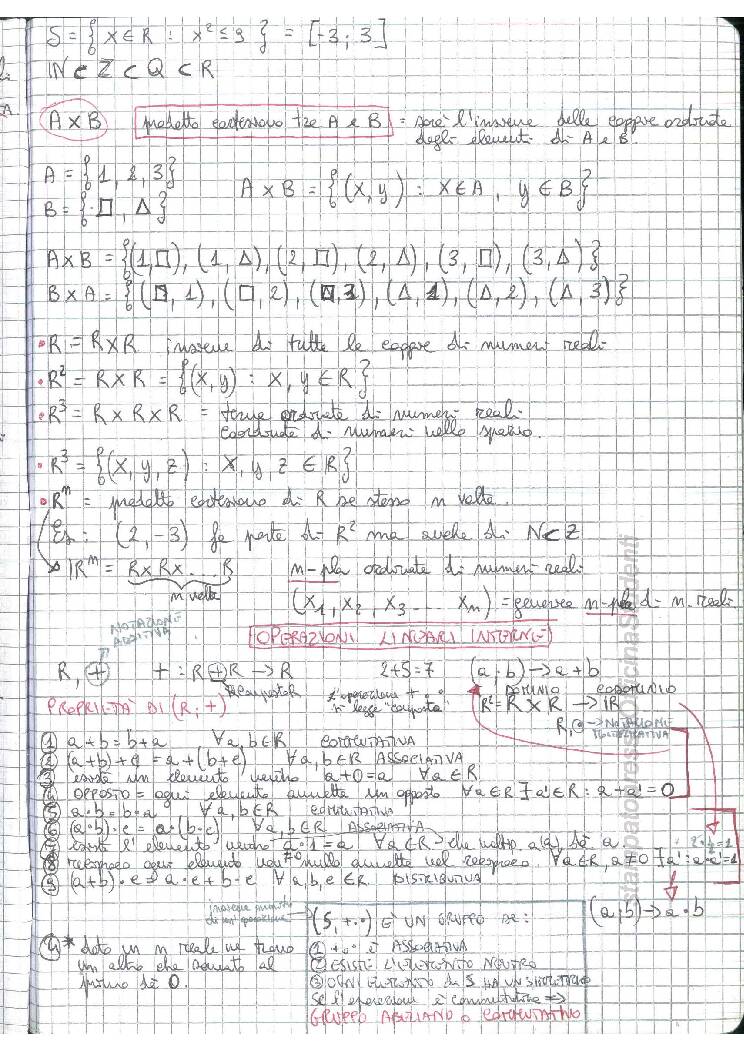 S = { x ∈ R : x² ≤ 9 } = [-3 ; 3]
N ⊂ Z ⊂ Q ⊂ R
A × B prodotto cartesiano tra A e B = sarà l'insieme delle coppie ordinate
degli elementi di A e B.
A = {1, 2, 3}
B = {□, Δ}
A × B = {(x, y) : x ∈ A, y ∈ B}
A×B = {(1,□), (1, Δ), (2, □), (2, Δ), (3, □), (3, Δ)}
B×A = {(□, 1), (□, 2), (□, 3), (Δ, 1), (Δ, 2), (Δ, 3)}
• R = R×R insieme di tutte le coppie di numeri reali
• R² = R×R = {(x, y) : x, y ∈ R}
• R³ = R × R × R = terne ordinate di numeri reali
coordinate di numeri nello spazio.
• R³ = {(x, y, z) : x, y, z ∈ R}
• Rⁿ = prodotto cartesiano di R se stesso n volte.
Es: (2, -3) fa parte di R² ma anche di N⊂Z
Rⁿ = R×R×....R n-pla ordinate di numeri reali
n volte
(x₁, x₂, x₃ .... xₙ) = generica n-pla di n. reali
NOTAZIONE
ADDITIVA
OPERAZIONI LINEARI INTERNE
R, + + : R + R → R 2+5=7 (a ; b) → a + b
DOMINIO CODOMINIO
R² = R × R → R
PROPRIETÀ DI (R ; +)
R, • → NOTAZIONE
MOLTIPLICATIVA
① a + b = b + a ∀ a, b ∈ R COMMUTATIVA
② (a + b) + c = a + (b + c) ∀ a, b ∈ R ASSOCIATIVA
③ esiste un elemento neutro a + 0 = a ∀ a ∈ R
④ OPPOSTO = ogni elemento ammette un opposto ∀ a ∈ R ∃ a' ∈ R : a + a' = 0
⑤ a • b = b • a ∀ a, b ∈ R COMMUTATIVA
⑥ (a • b) • c = a • (b • c) ∀ a, b ∈ R ASSOCIATIVA
⑦ esiste l'elemento neutro a • 1 = a ∀ a ∈ R
⑧ reciproco ogni elemento non nullo ammette nel reciproco ∀ a ∈ R, a ≠ 0 ∃ a' : a • a' = 1
⑨ (a + b) • c = a • c + b • c ∀ a, b, c ∈ R DISTRIBUTIVA
insieme munito
di un'operazione
(S, + •) È UN GRUPPO SE :
(a ; b) → a • b
④* dato un n reale ne trovo
un altro che sommato al
primo dà 0.
① + o • è ASSOCIATIVA
② ESISTE L'ELEMENTO NEUTRO
③ OGNI ELEMENTO di S HA UN SIMMETRICO
Se l'operazione è commutativa ⇒
GRUPPO ABELIANO O COMMUTATIVO
Stampato presso Officina Studenti